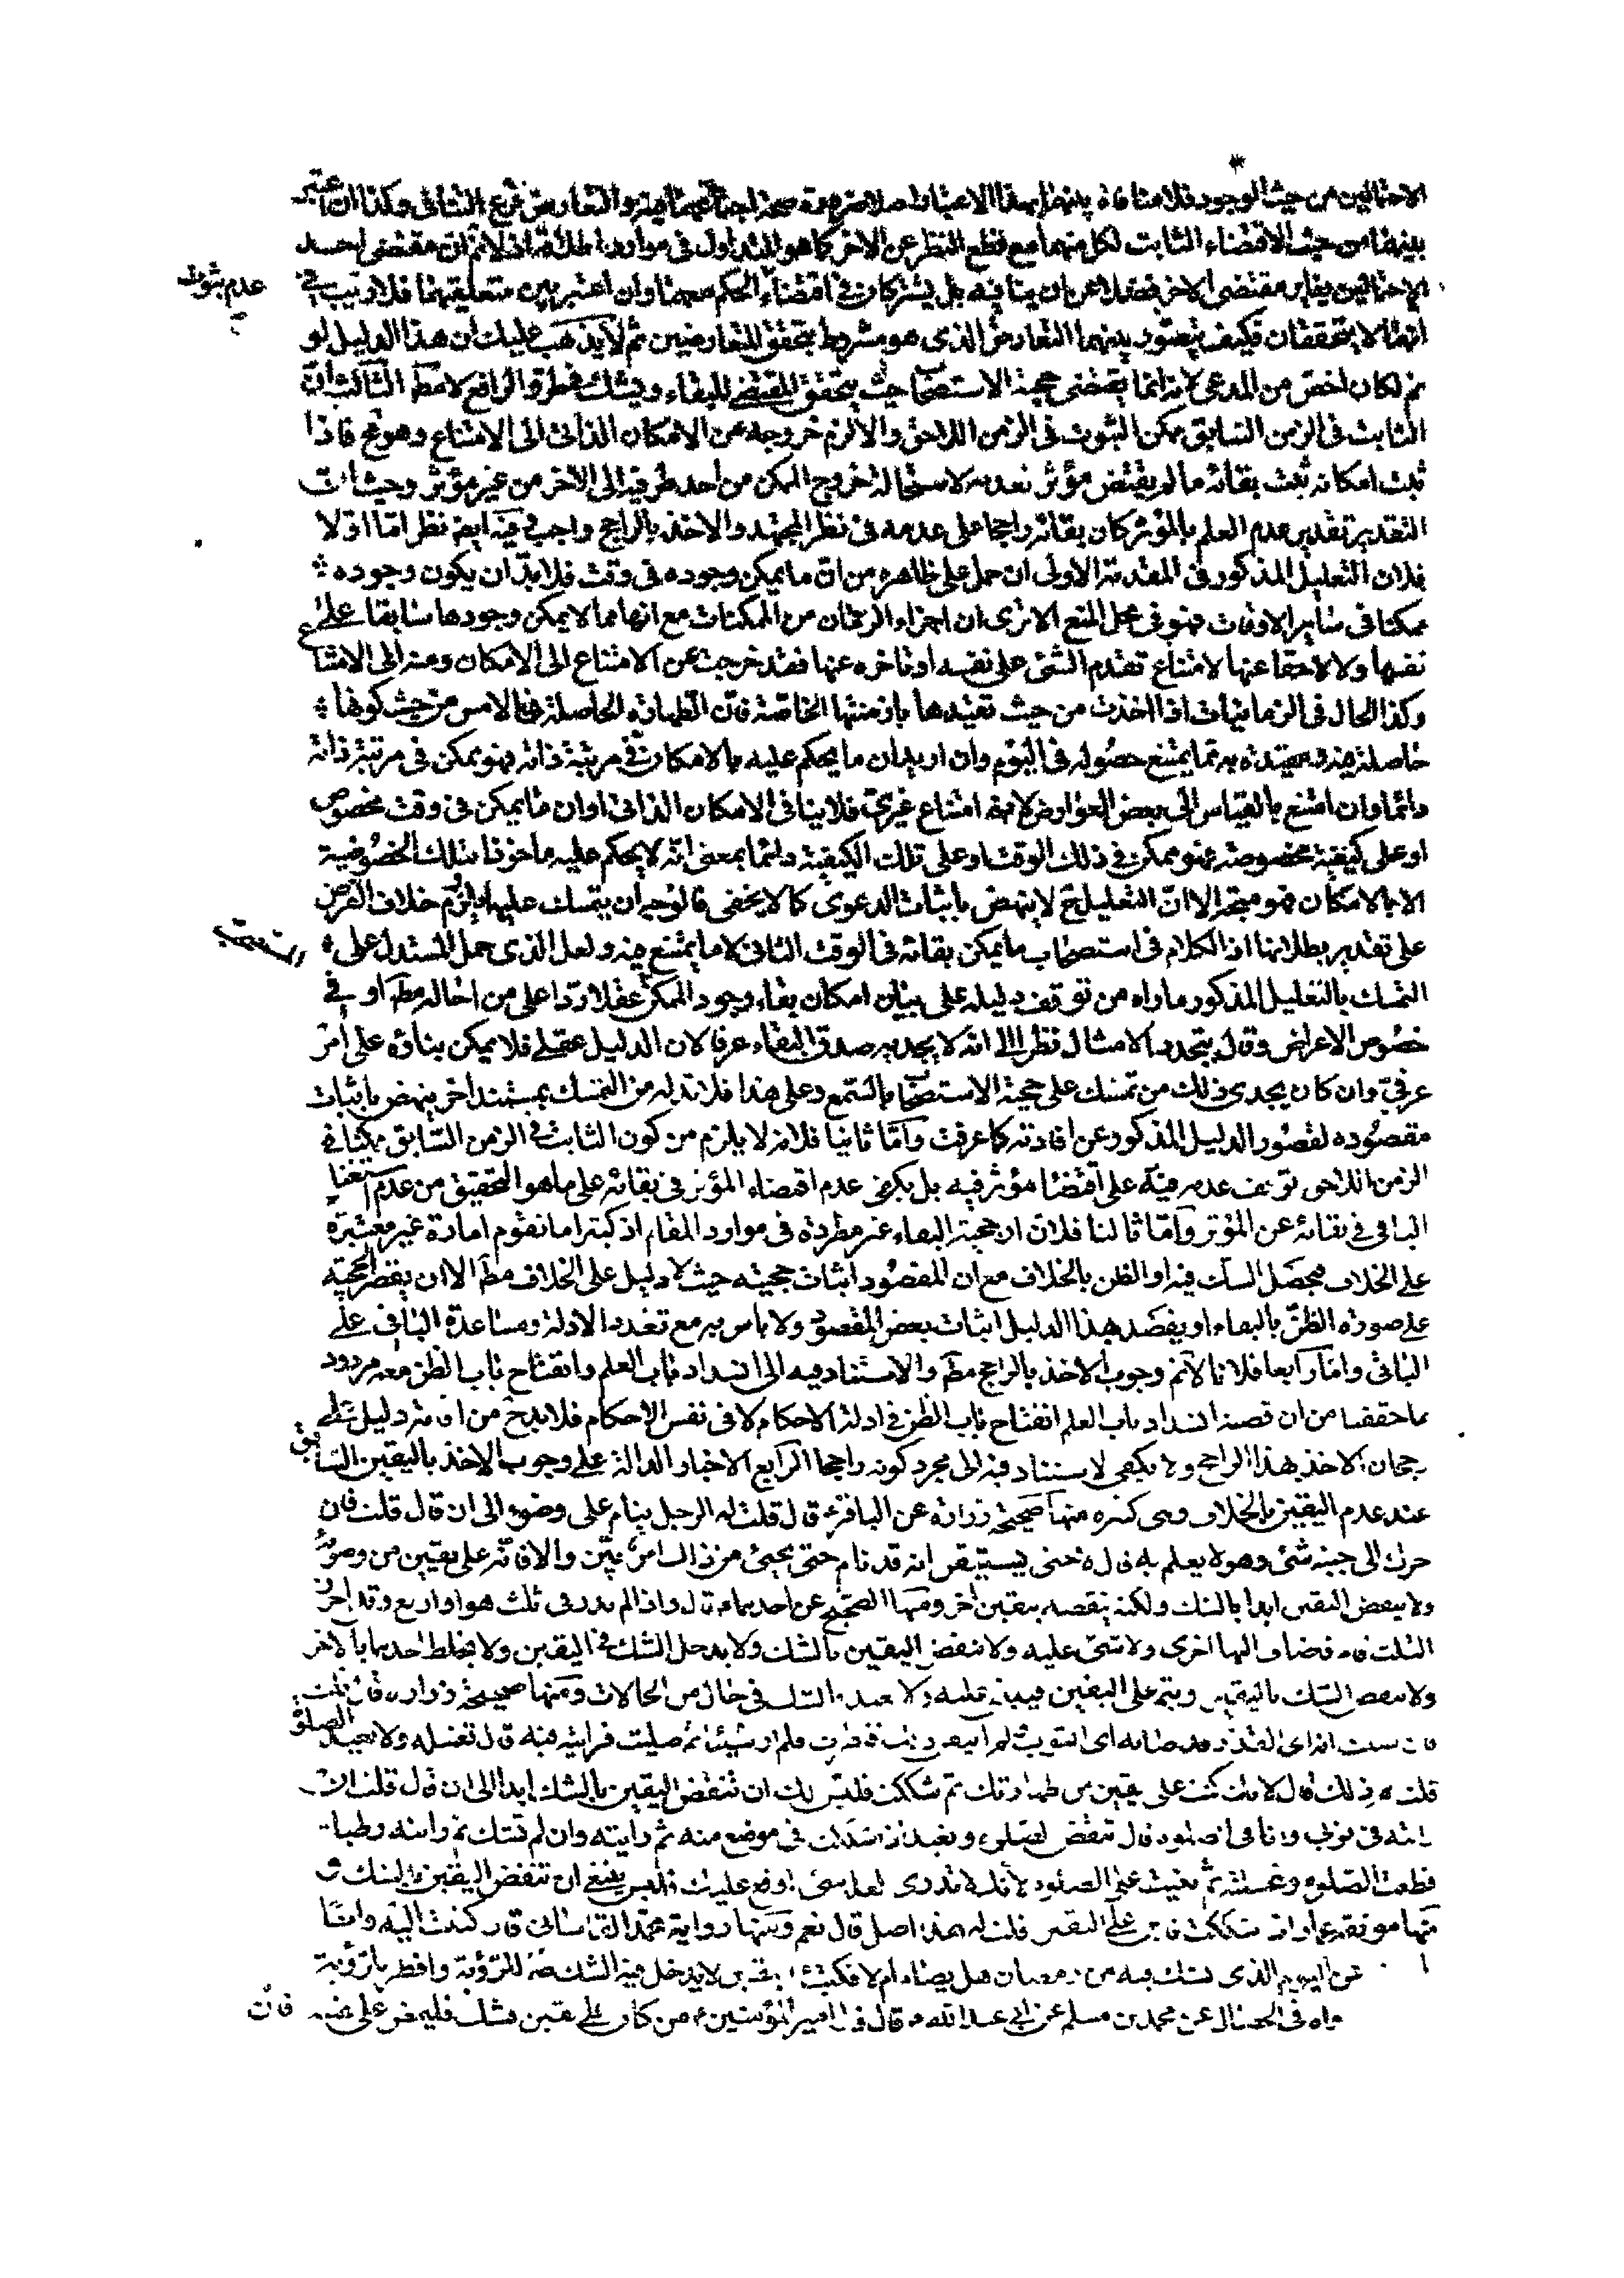 الاحتمالين من حيث الوجود فلا منافاة بينهما بهذا الاعتبار صحة اجتماعهما فيه والتعارض فرع التنافى وكذا ان اعتبر
بينهما من حيث الاقتضاء الثابت لكل منهما مع قطع النظر عن الاخر كما هو المتداول فى موارد اطلاقه اذ لا نم ان مقتضى احد
الاحتمالين يغاير مقتضى الاخر فضلا عن ان ينافيه بل يشتركان فى اقتضاء الحكم معهما وان اعتبر بين متعلقيهما فلا ريب فى
عدم ثبوت
انهما لا يتحققان فكيف يتصور بينهما التعارض الذى هو مشروط بتحقق المتعارضين ثم لا يذهب عليك ان هذا الدليل لو
تم لكان اخص من المدعى لانه انما يقتضى حجية الاستصحاب حيث يتحقق المقتضى للبقاء ويشك فى طرو الرافع لا مط الثالث ان
الثابت فى الزمن السابق ممكن الثبوت فى الزمن اللاحق والا لزم خروجه عن الامكان الذاتى الى الامتناع وهو مح فاذا
ثبت امكانه ثبت بقائه ما لم يقتض مؤثر عدمه لاستحالة خروج الممكن من احد طرفيه الى الاخر من غير مؤثر وحيث ان
التقدير تقدير عدم العلم بالمؤثر كان بقائه راجحا على عدمه فى نظر المجتهد والاخذ بالراجح واجب فيه ايض نظر اما اولا
فلان التعليل المذكور فى المقدمة الاولى ان حمل على ظاهره من ان ما يمكن وجوده فى وقت فلا بد ان يكون وجوده
ممكنا فى ساير الاوقات فهو فى محل المنع الا ترى ان اجزاء الزمان من الممكنات مع انها مما لا يمكن وجودها سابقا على
نفسها ولا لاحقا عنها لامتناع تقدم الشئ على نفسه او تاخره عنها فقد خرجت عن الامتناع الى الامكان ومنه الى الامتناع
وكذا الحال فى الزمانيات اذا اخذت من حيث تقيدها بازمنتها الخاصة فان الطهارة الحاصلة فى الامس من حيث كونها
حاصلة فيه ومقيدة به مما يمتنع حصوله فى اليوم وان اريد ان ما يحكم عليه بالامكان فى مرتبة ذاته فهو ممكن فى مرتبة ذاته
دائما وان امتنع بالقياس الى بعض العوارض لانه امتناع غيرى فلا ينافى الامكان الذاتى او ان ما يمكن فى وقت مخصوص
او على كيفية مخصوصة فهو ممكن فى ذلك الوقت او على تلك الكيفية دائما بمعنى انه لا يحكم عليه ماخوذا بتلك الخصوصية
الا بالامكان فهو متجه الا ان التعليل ح لا ينهض باثبات الدعوى كما لا يخفى فالوجه ان يتمسك عليها بلزوم خلاف الفرض
على تقدير بطلانها اذ الكلام فى استصحاب ما يمكن بقائه فى الوقت الثانى لا ما يمتنع فيه ولعل الذى حمل المستدل على
التمسك بالتعليل المذكور ما راه من توقف دليله على بيان امكان بقاء وجود الممكن عقلا ردا على من احاله مط او فى
خصوص الاعراض وقال بتجدد الامثال نظرا الى انه لا يجديه صدق البقاء عرفا لان الدليل عقلى فلا يمكن بناؤه على امر
عرفى وان كان يجدى ذلك من تمسك على حجية الاستصحاب بالسمع وعلى هذا فلا بد له من التمسك بمستند اخر ينهض باثبات
مقصوده لقصور الدليل المذكور عن افادته كما عرفت واما ثانيا فلانه لا يلزم من كون الثابت فى الزمن السابق ممكنا فى
الزمن اللاحق توقف عدمه فيه على اقتضاء مؤثر فيه بل يكفى عدم اقتضاء المؤثر فى بقائه على ما هو التحقيق من عدم استغناء
الباقى فى بقائه عن المؤثر واما ثالثا فلان ارجحية البقاء غير مطردة فى موارد المقام اذ كثيرا ما تقوم امارة غير معتبرة
على الخلاف فيحصل الشك فيه او الظن بالخلاف مع ان المقصود اثبات حجيته حيث لا دليل على الخلاف مط الا ان يقصر الحجية
على صورة الظن بالبقاء او يقصد بهذا الدليل اثبات بعض المقصود ولا باس به مع تعدد الادلة ومساعدة الباقى على
الباقى واما رابعا فلانا لا نم وجوب الاخذ بالراجح مط والاستناد فيه الى انسداد باب العلم وانفتاح باب الظن معه مردود
بما حققنا من ان قضية انسداد باب العلم انفتاح باب الظن فى ادلة الاحكام لا فى نفس الاحكام فلا بد ح من اقامة دليل على
رجحان الاخذ بهذا الراجح ولا يكفى الاستناد فيه الى مجرد كونه راجحا الرابع الاخبار الدالة على وجوب الاخذ باليقين السابق
عند عدم اليقين بالخلاف وهى كثيرة منها صحيحة زرارة عن الباقر ع قال قلت له الرجل ينام على وضوء الى ان قال قلت فان
حرك الى جنبه شئ وهو لا يعلم به قال لا حتى يستيقن انه قد نام حتى يجئ من ذلك امر بين والا فانه على يقين من وضوئه
ولا ينقض اليقين ابدا بالشك ولكنه ينقضه بيقين اخر ومنها الصحيح عن احدهما قال واذا لم يدر فى ثلث هو او اربع وقد احرز
الثلث قام فضاف اليها اخرى ولا شئ عليه ولا ينقض اليقين بالشك ولا يدخل الشك فى اليقين ولا يخلط احدهما بالاخر
ولا ينقض الشك باليقين ويتم على اليقين فيبنى عليه ولا يعتد بالشك فى حال من الحالات ومنها صحيحة زرارة قال قلت
فان ظننت انه اصابه فنظرت فلم ار شيئا ثم صليت فرايته فيه قال تغسله ولا تعيد الصلوة
قلت لم ذلك قال لانك كنت على يقين من طهارتك ثم شككت فليس لك ان تنقض اليقين بالشك ابدا الى ان قال قلت ان
رايته فى ثوبى وانا فى الصلوة قال تنقض الصلوة وتعيد اذا شككت فى موضع منه ثم رايته وان لم تشك ثم رايته رطبا
قطعت الصلوة وغسلته ثم بنيت على الصلوة لانك لا تدرى لعله شئ اوقع عليك فليس ينبغى ان تنقض اليقين بالشك و
منها موثقة عمار اذا شككت فابن على اليقين قلت له هذا اصل قال نعم ومنها رواية محمد القاسانى قال كتبت اليه وانا
عن اليوم الذى يشك فيه من رمضان هل يصام ام لا فكتب اليقين لا يدخل فيه الشك صم للرؤية وافطر للرؤية
رواه فى الخصال عن محمد بن مسلم عن ابى عبد الله ع قال قال امير المؤمنين ع من كان على يقين فشك فليمض على يقينه فان